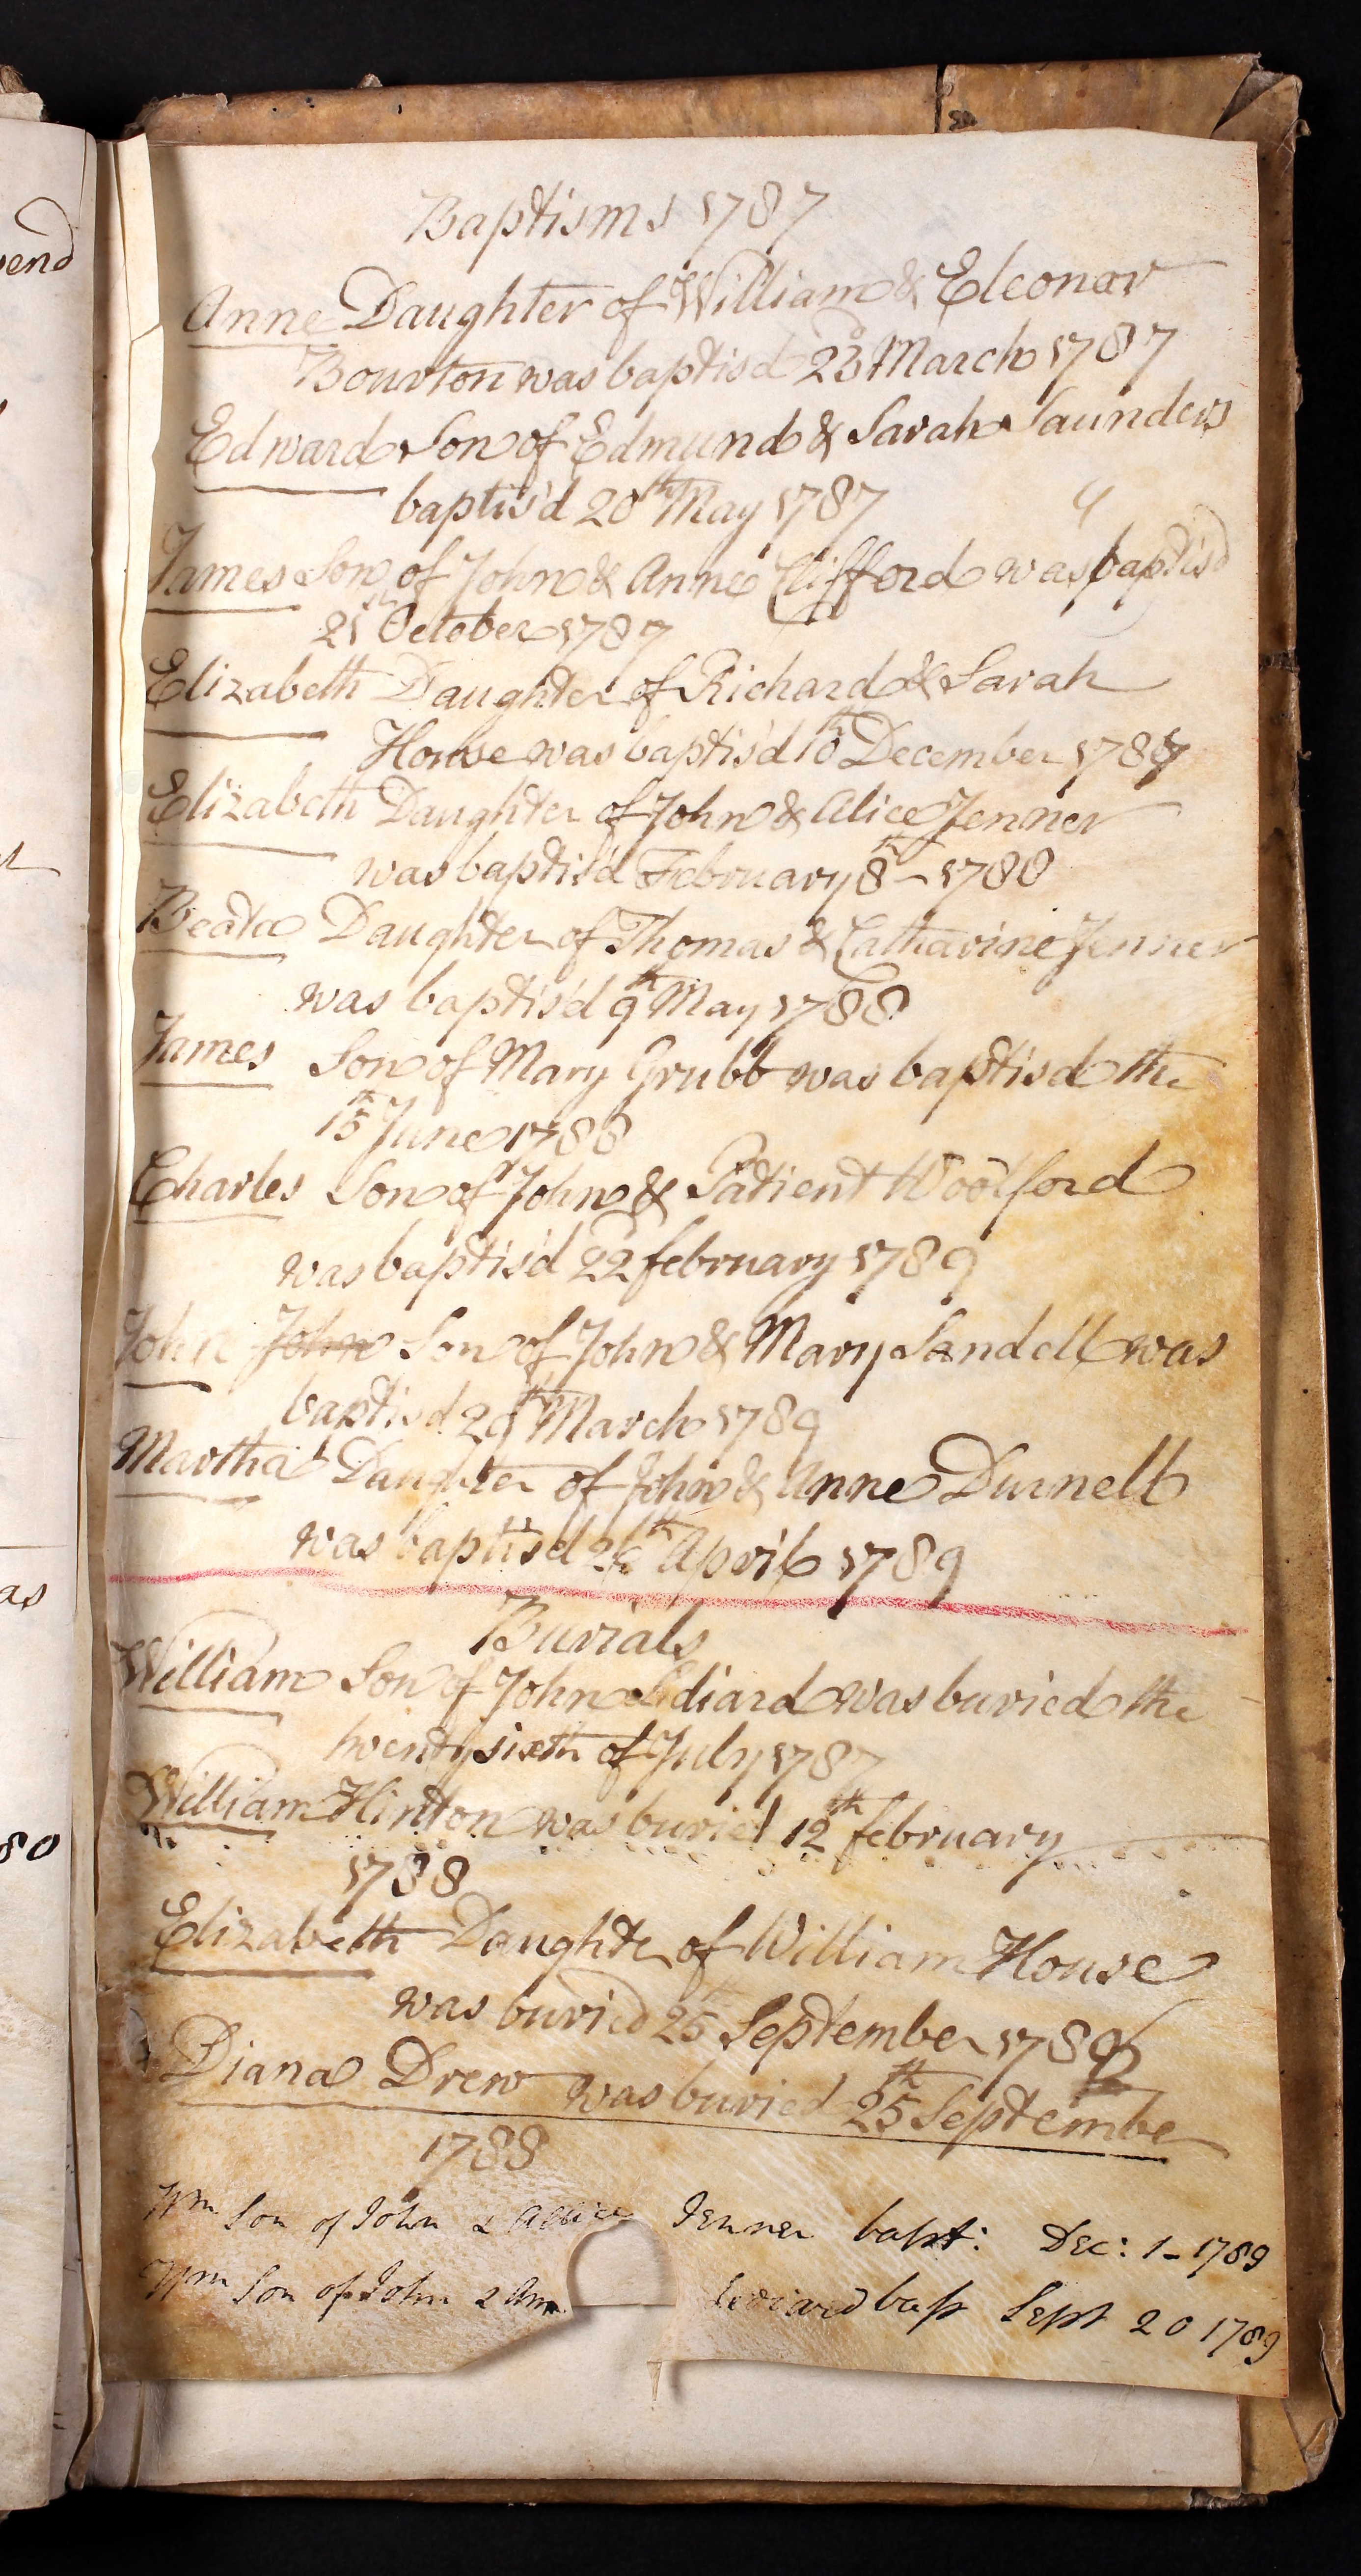 Baptisms 1787
Anne Daughter of William & Eleonor
Bourton was baptisd 23d March 1787
Edward Son of Edmund & Sarah Saunders
baptis'd 20th May 1787
James Son of John & Anne Clifford was baptisd
21st October 1787
Elizabeth Daughter of Richard & Sarah
House was baptis'd 10th December 1787
Elizabeth Daughter of John & Alice Jenner
was baptis'd February 8th - 1788
Beata Daughter of Thomas & Catharine Jenner
was baptis'd 9th May 1788
James Son of Mary Grubb was baptisd the
15th June 1788
Charles Son of John & Patient Woolford
was baptis'd 22d february 1789
John John Son of John & Mary Sandell was
baptisd 29th March 1789
Martha Daughter of John & Anne Durnell
was baptisd 26th April 1789
Burials
William Son of John Ediard was buried the
twenty sixth of July 1787
William Hinton was buried 12th february
1788
Elizabeth Daughter of William House
was buried 25th September 1788
Diana Drew was buried 25th Septembe
1788
Wm Son of John & Allice Jenner bapt: Dec: 1 - 1789
Wm Son of John & Ann bap Sept 20 1789
end
as
80